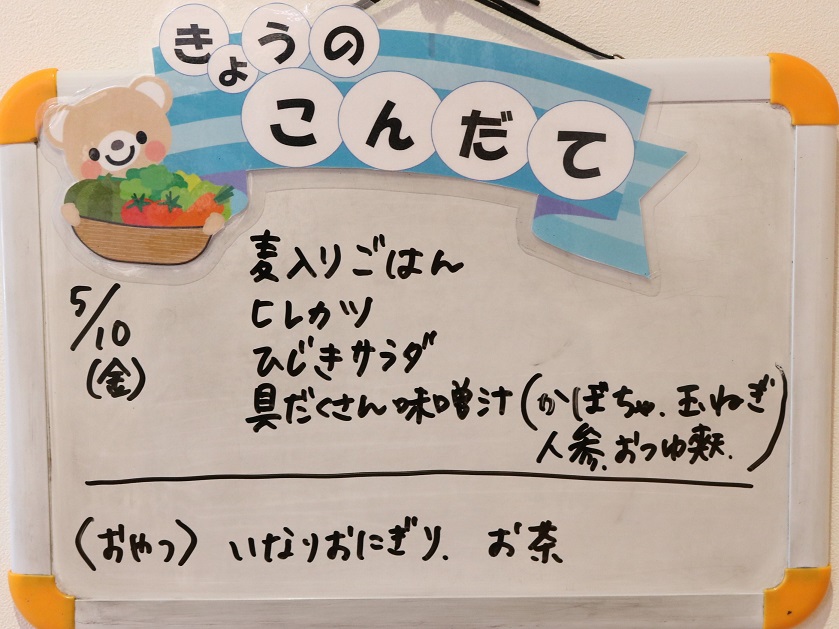 きょうの
こんだて
5/10
(金)
麦入りごはん
ヒレカツ
ひじきサラダ
具だくさん味噌汁(かぼちゃ、玉ねぎ
人参、おつゆ麩)
(おやつ) いなりおにぎり、お茶